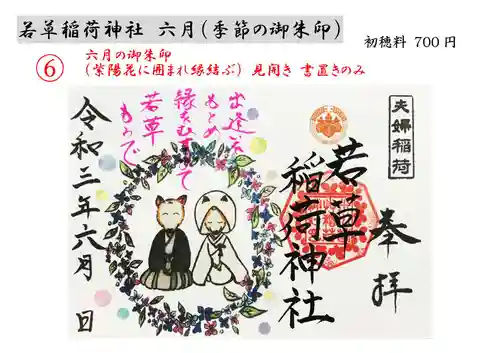 若草稲荷神社 六月(季節の御朱印)
初穂料 700円
⑥
六月の御朱印
(紫陽花に囲まれ縁結ぶ) 見開き 書置きのみ
夫婦稲荷
奉拝
若草
稲荷神社
出逢いを
もとめ
縁をむすびて
若草
もうで
令和三年六月 日